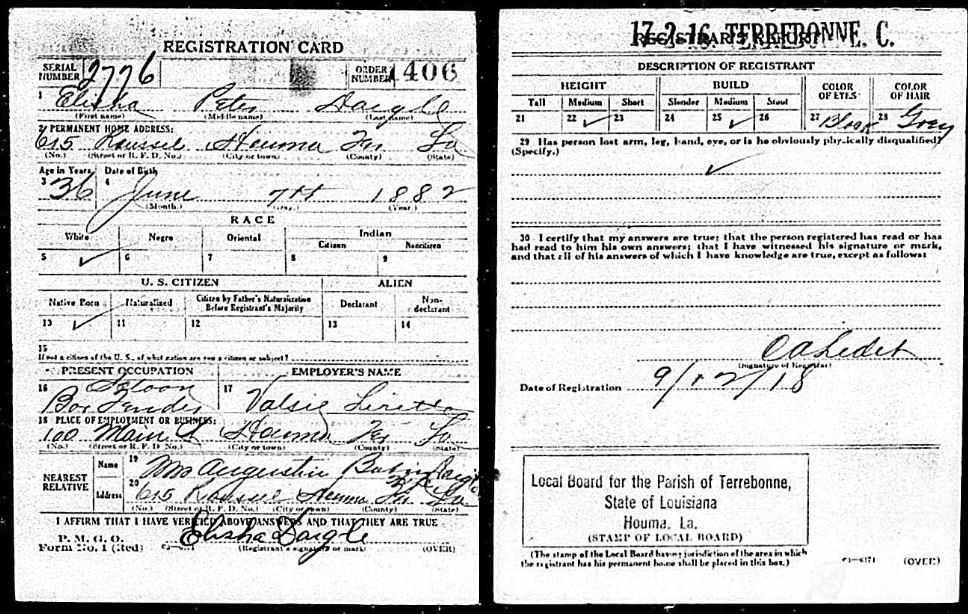 REGISTRATION CARD
SERIAL NUMBER 2776 ORDER NUMBER 1406
1 Elisha Peter Daigle
(First name) (Middle name) (Last name)
2 PERMANENT HOME ADDRESS:
615 Roussel Houma Ter La
(No.) (Street or R. F. D. No.) (City or town) (County) (State)
Age in Years Date of Birth
3 36 4 June 7th 1882
(Month.) (Day.) (Year.)
RACE
White Negro Oriental Indian
Citizen Noncitizen
5 ✓ 6 7 8 9
U. S. CITIZEN ALIEN
Native Born Naturalized Citizen by Father's Naturalization Before Registrant's Majority Declarant Non-declarant
10 ✓ 11 12 13 14
15
If not a citizen of the U. S., of what nation are you a citizen or subject?
PRESENT OCCUPATION EMPLOYER'S NAME
16 Saloon 17
Bar Tender Valsie
18 PLACE OF EMPLOYMENT OR BUSINESS:
100 Main St Houma Ter La
(No.) (Street or R. F. D. No.) (City or town) (County) (State)
NEAREST RELATIVE
Name 19 Mrs Augustin Daigle
Address 20 615 Roussel Houma Ter La
(No.) (Street or R. F. D. No.) (City or town) (County) (State)
I AFFIRM THAT I HAVE VERIFIED ABOVE ANSWERS AND THAT THEY ARE TRUE
P. M. G. O.
Form No. 1 (Red) Elisha Daigle
(Registrant's signature or mark) (OVER)
17-2-16 TERREBONNE. C.
REGISTRAR'S REPORT
DESCRIPTION OF REGISTRANT
HEIGHT BUILD COLOR OF EYES COLOR OF HAIR
Tall Medium Short Slender Medium Stout
21 22 ✓ 23 24 25 ✓ 26 27 Black 28 Grey
29 Has person lost arm, leg, hand, eye, or is he obviously physically disqualified?
(Specify.)
✓
30 I certify that my answers are true; that the person registered has read or has
had read to him his own answers; that I have witnessed his signature or mark,
and that all of his answers of which I have knowledge are true, except as follows:
C A Ledet
(Signature of Registrar)
Date of Registration 9/12/18
Local Board for the Parish of Terrebonne,
State of Louisiana
Houma, La.
(STAMP OF LOCAL BOARD)
(The stamp of the Local Board having jurisdiction of the area in which
the registrant has his permanent home shall be placed in this box.)
03-6171 (OVER)